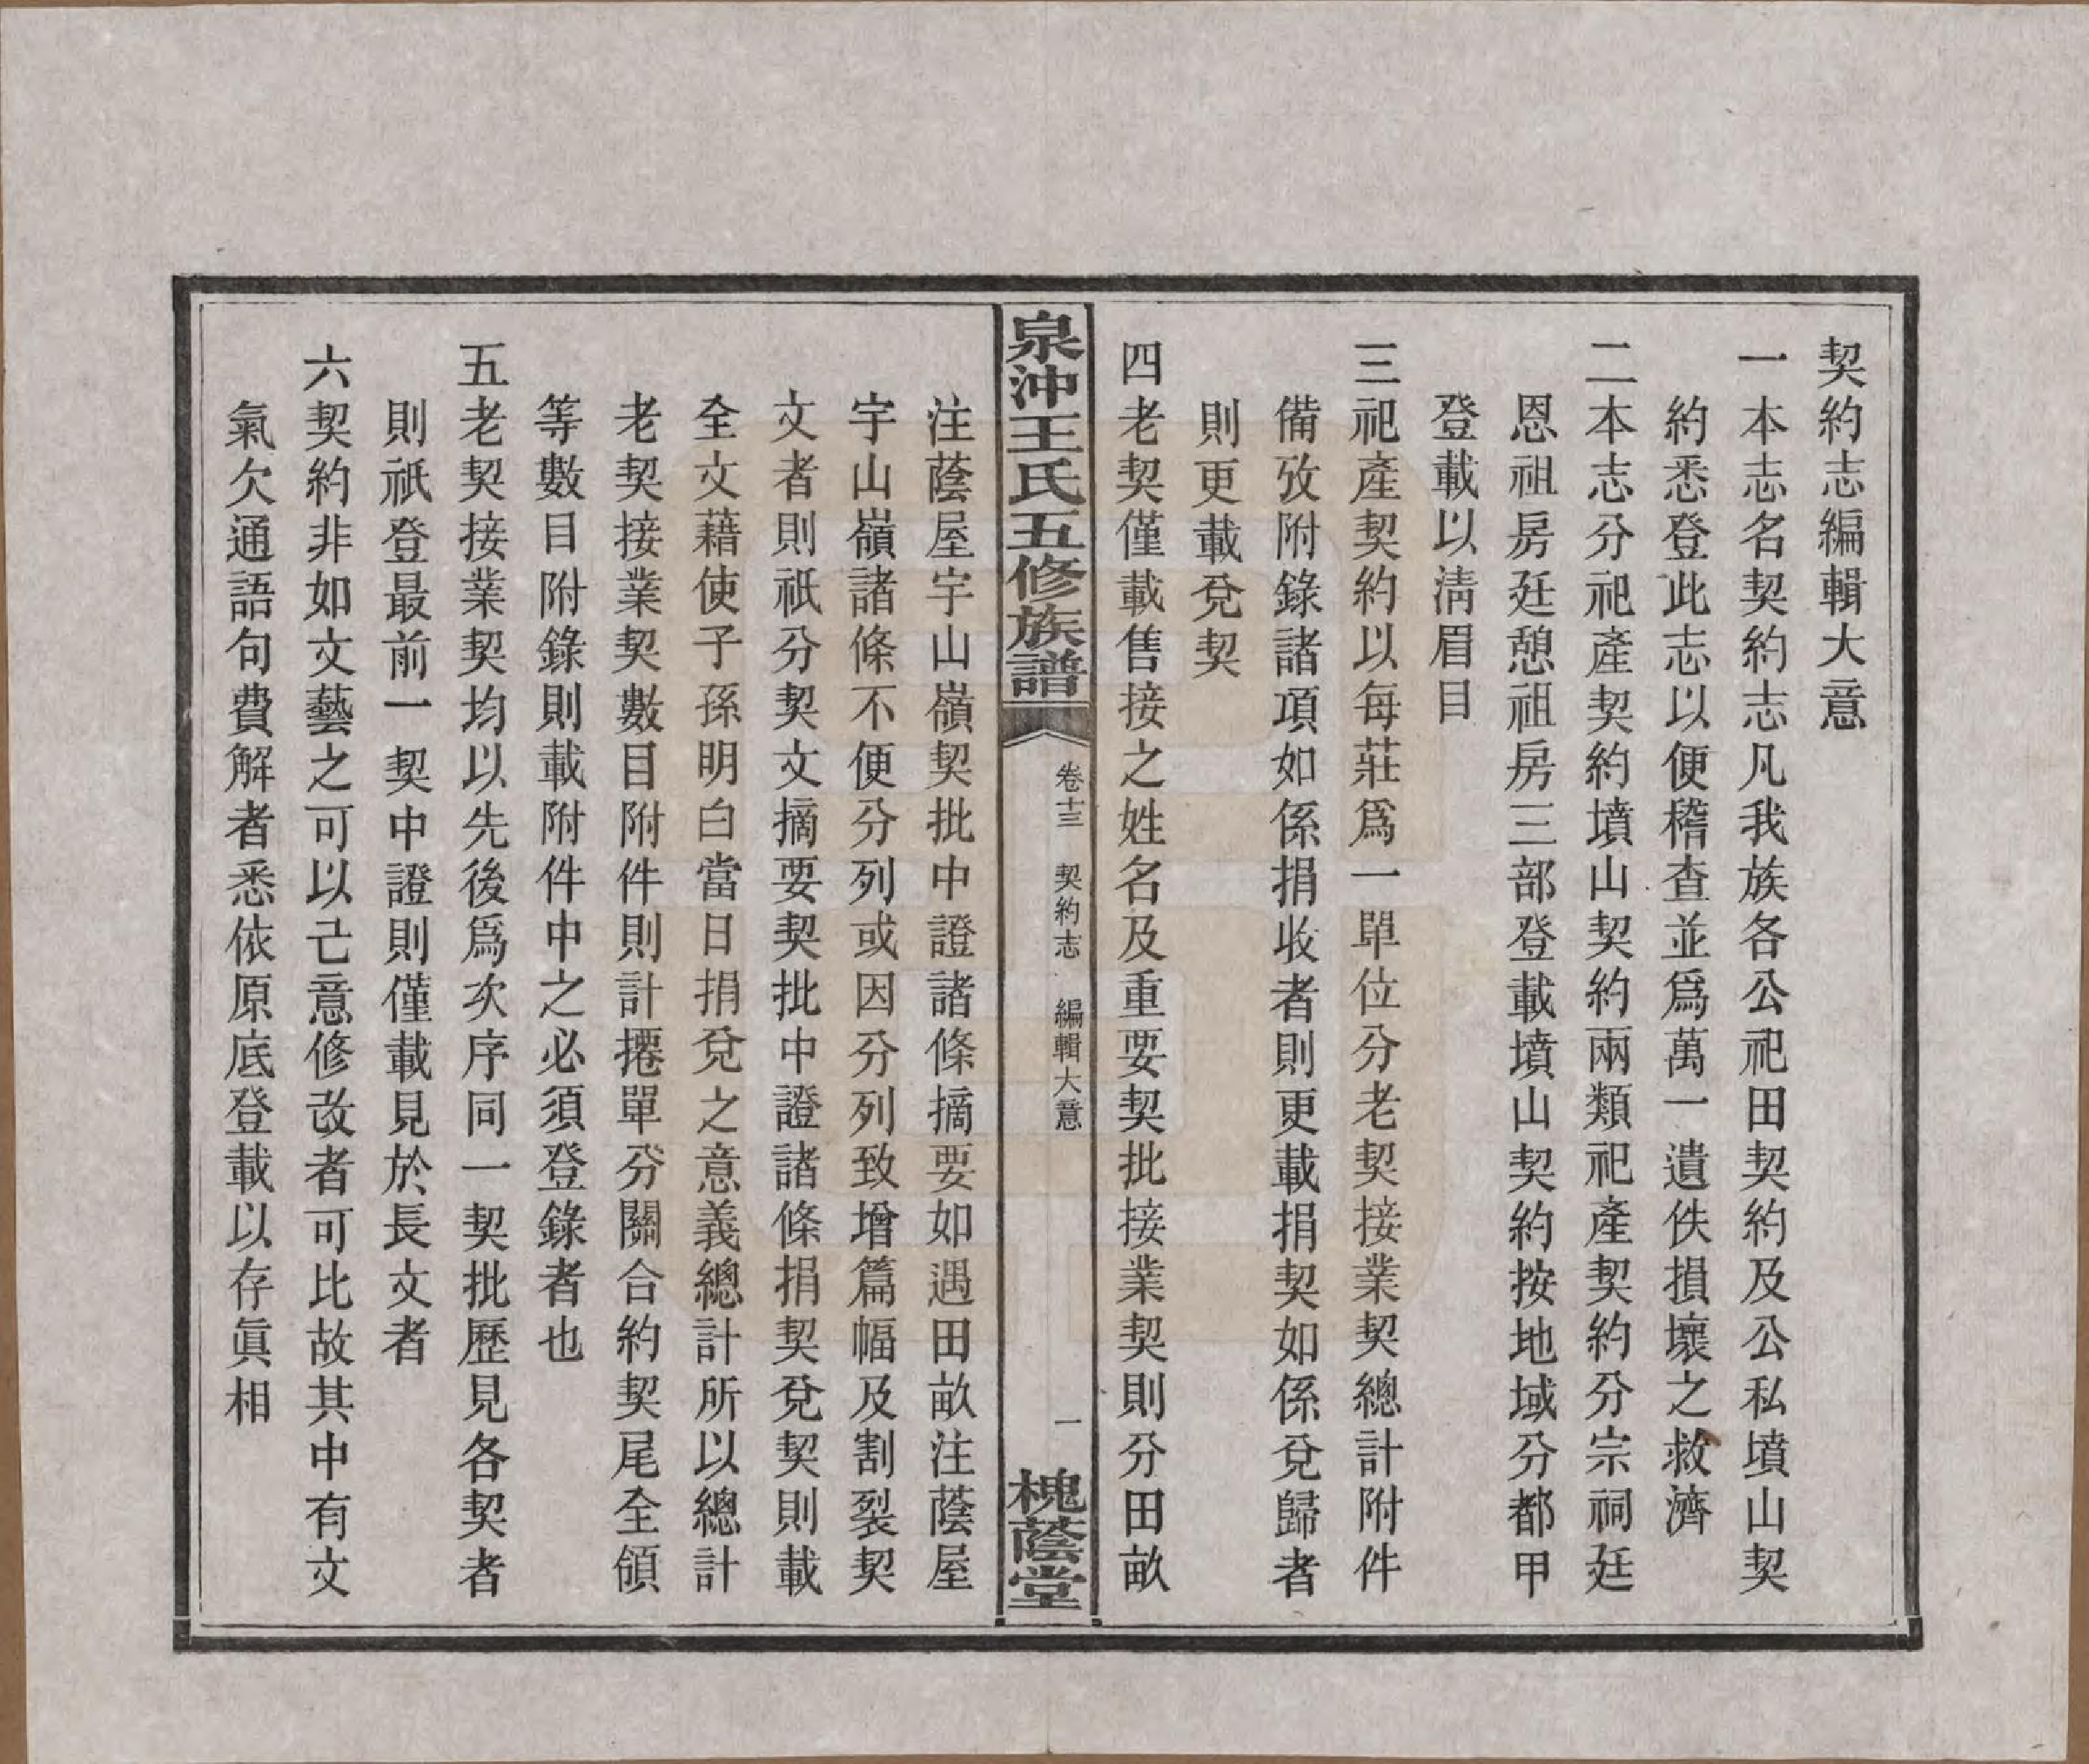 契約志編輯大意
一本志名契約志凡我族各公祀田契約及公私墳山契
約悉登此志以便稽查並爲萬一遺佚損壞之救濟
二本志分祀產契約墳山契約兩類祀產契約分宗祠廷
恩祖房廷憩祖房三部登載墳山契約按地域分都甲
登載以淸眉目
三祀產契約以每莊爲一單位分老契接業契總計附件
備攷附錄諸項如係捐收者則更載捐契如係兌歸者
則更載兌契
四老契僅載售接之姓名及重要契批接業契則分田畝
泉沖王氏五修族譜
卷十三 契約志 編輯大意
一
槐蔭堂
注蔭屋宇山嶺契批中證諸條摘要如遇田畝注蔭屋
宇山嶺諸條不便分列或因分列致增篇幅及割裂契
文者則祇分契文摘要契批中證諸條捐契兌契則載
全文藉使子孫明白當日捐兌之意義總計所以總計
老契接業契數目附件則計撪單分關合約契尾全領
等數目附錄則載附件中之必須登錄者也
五老契接業契均以先後爲次序同一契批歷見各契者
則祇登最前一契中證則僅載見於長文者
六契約非如文藝之可以己意修改者可比故其中有文
氣欠通語句費解者悉依原底登載以存眞相